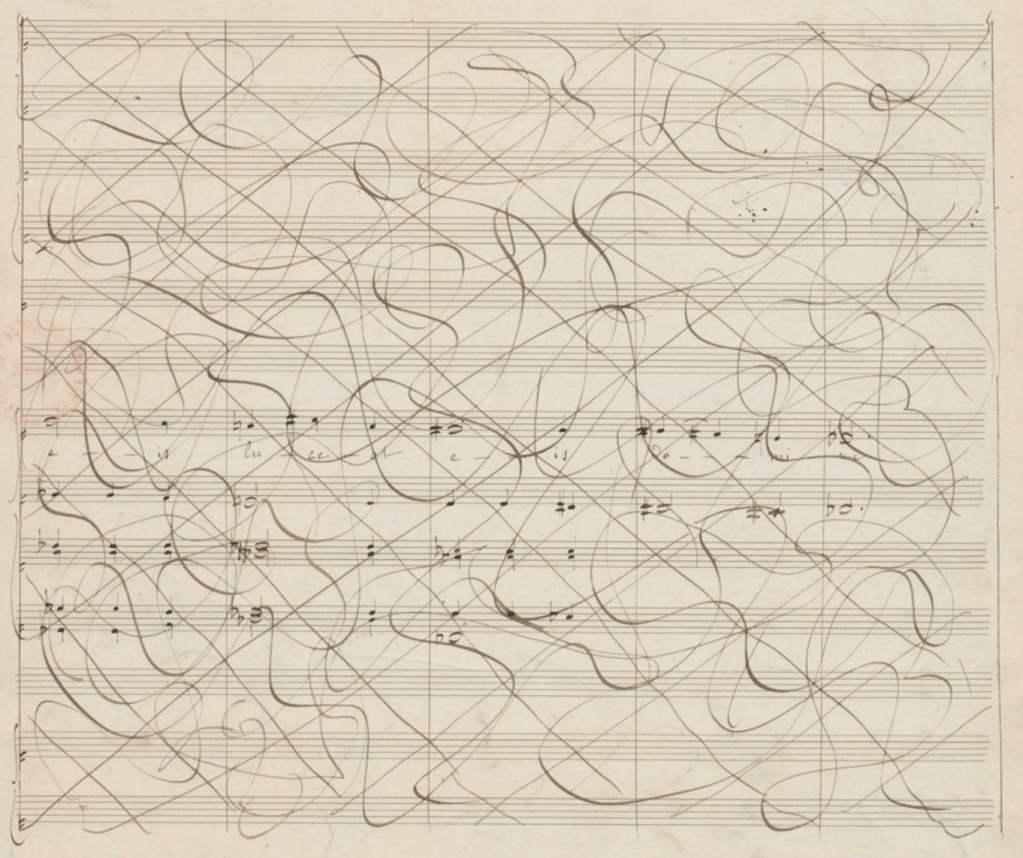 e - - - is lu - ce - at e - - is Do - - - mi - ne